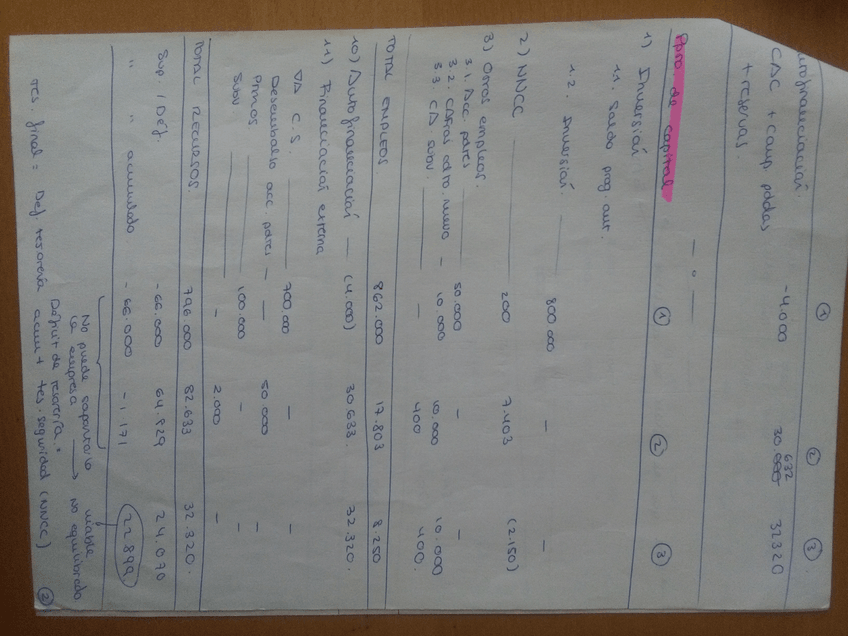 ① ② ③
Autofinanciación.
632
CDC + Comp. pddas -4.000 30.000 32320
+ reservas.
— o —
Ppro. de capital ① ② ③
1) Inversión
1.1. Saldo prog. ant.
1.2. Inversión. 800.000 — —
2) NNCC 200 7.403 (2.150)
3) Otros empleos
3.1. Acc. pares 50.000 — —
3.2. nuevo — 10.000 10.000 10.000
3.3. CD subv. — 400 400.
TOTAL EMPLEOS 862.000 17.803 8.250
10) Autofinanciación — (4.000) 30.633. 32.320.
11) Financiación externa
∇Δ C.S. 700.000 — —
Desembolso acc. pares — — 50.000 —
Ptmos 100.000 — —
Subv — 2.000 —
TOTAL RECURSOS. 796.000 82.633 32.320.
Sup. / Def. -66.000 64.829 24.070
" " acumulado -66.000 -1.171 22.899
No puede soportarlo viable
la empresa → No equilibrado
Déficit de tesorería.
Tes. final = Def. tesorería acum + tes. seguridad (NNCC)
②